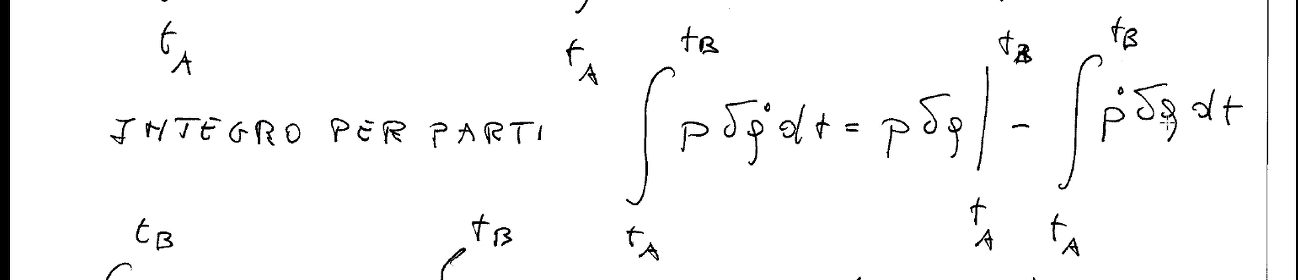 t_A t_A
INTEGRO PER PARTI ∫_{t_A}^{t_B} p δq̇ dt = p δq |_{t_A}^{t_B} - ∫_{t_A}^{t_B} ṗ δq dt
t_B t_B